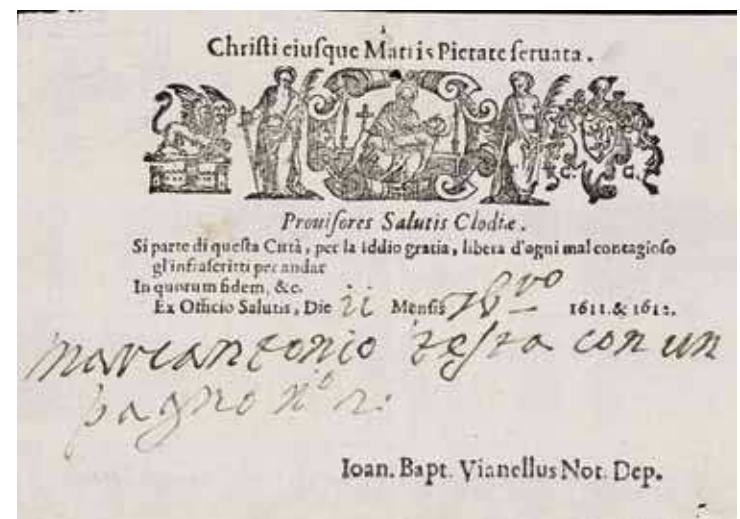 Christi eiusque Matris Pietate seruata.
Prouisores Salutis Clodiæ.
Si parte di questa Città, per la Iddio gratia, libera d'ogni mal contagioso
gl'infrascritti per andar
In quorum fidem, &c.
Ex Officio Salutis, Die ii Mensis Xbro 1611. & 1612.
marcantonio testa con un
pagno n.o
Ioan. Bapt. Vianellus Not. Dep.